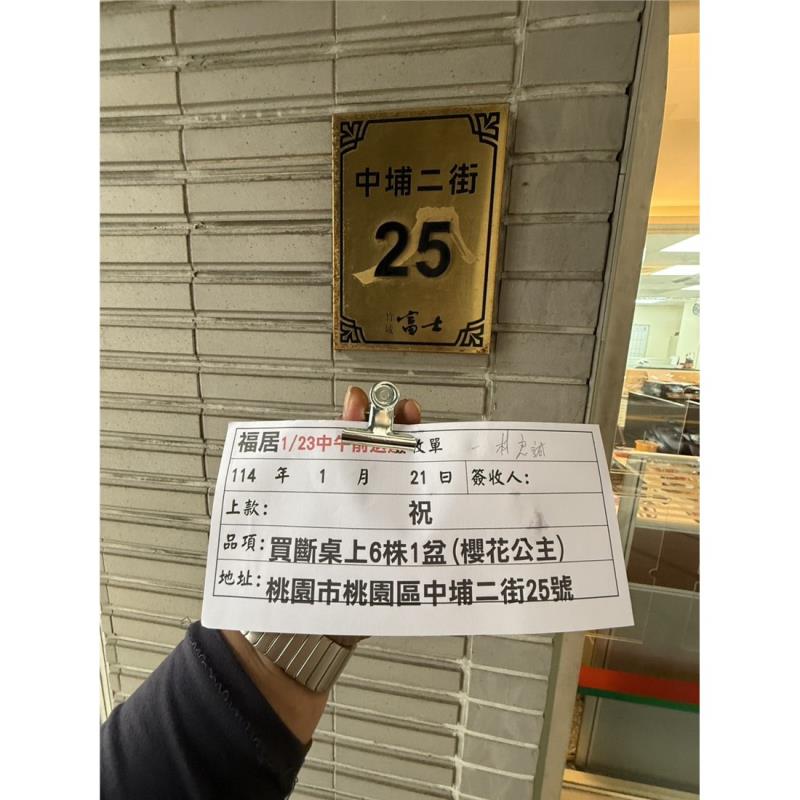 中埔二街
25
竹城 富士
福居1/23中午前送 收單
114 年 1 月 21 日 簽收人:
上款: 祝
品項: 買斷桌上6株1盆(櫻花公主)
地址: 桃園市桃園區中埔二街25號